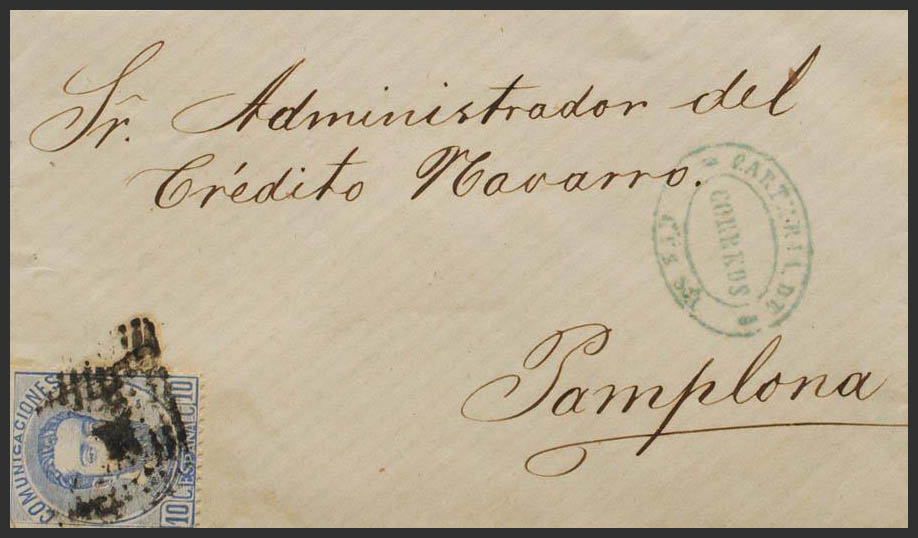 Sr. Administrador del
Crédito Navarro.
CARTERIA DE
CORREOS
Pamplona
COMUNICACIONES
10 C. ESPAÑA C. 10